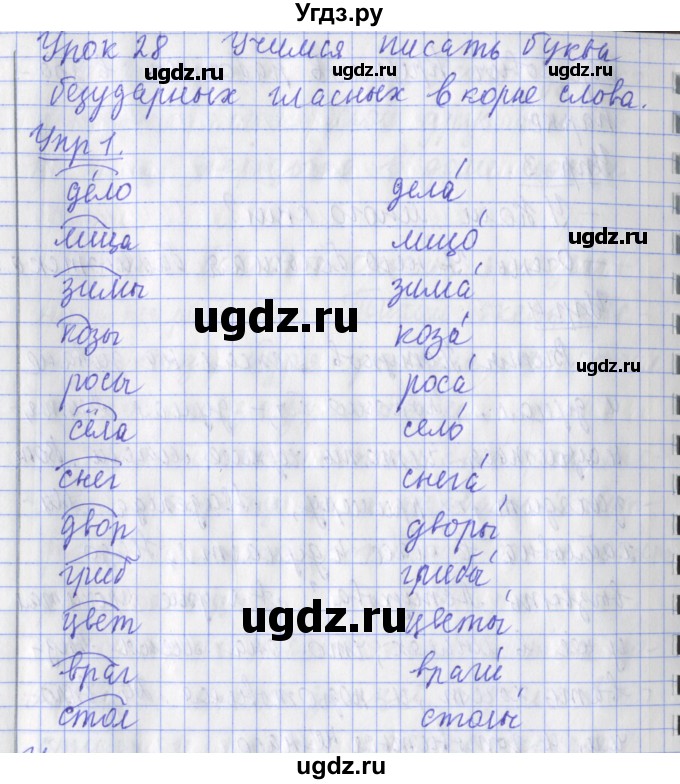 Угдз.ру
Урок 28 Учимся писать буква
безударных гласных в корне слова.
Упр 1.
де́ло дела́
лица лицо́
зимы зима́
козы коза́
росы роса́
сёла село́
снег снега́
двор дворы́
гриб грибы́
цвет цветы́
враг враги́
стол столы́
ugdz.ru
ugdz.ru
ugdz.ru
ugdz.ru
ugdz.ru
ugdz.ru
ugdz.ru
ugdz.ru
ugdz.ru
ugdz.ru
ugdz.ru